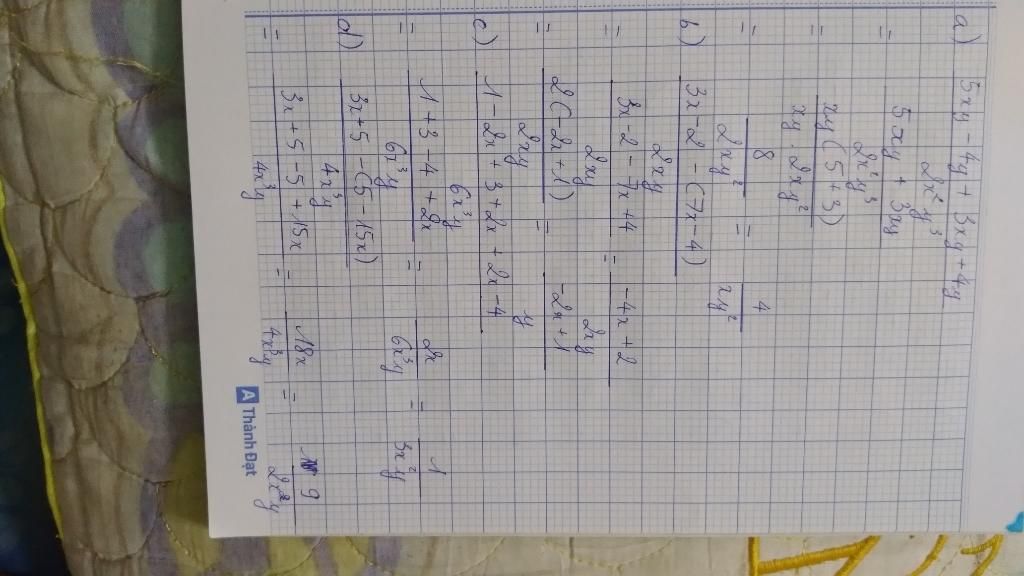 a) (5xy - 4y + 3xy + 4y) / (2x²y³)
= (5xy + 3xy) / (2x²y³)
= xy(5+3) / (xy.2xy²)
= 8 / (2xy²) = 4 / (xy²)
b) (3x - 2 - (7x - 4)) / (2xy)
= (3x - 2 - 7x + 4) / (2xy) = (-4x + 2) / (2xy)
= 2(-2x + 1) / (2xy) = (-2x + 1) / y
c) (1 - 2x + 3 + 2x + 2x - 4) / (6x³y)
= (1 + 3 - 4 + 2x) / (6x³y) = 2x / (6x³y) = 1 / (3x²y)
d) (3x + 5 - (5 - 15x)) / (4x³y)
= (3x + 5 - 5 + 15x) / (4x³y) = 18x / (4x³y) = 9 / (2x²y)
A Thành Đạt